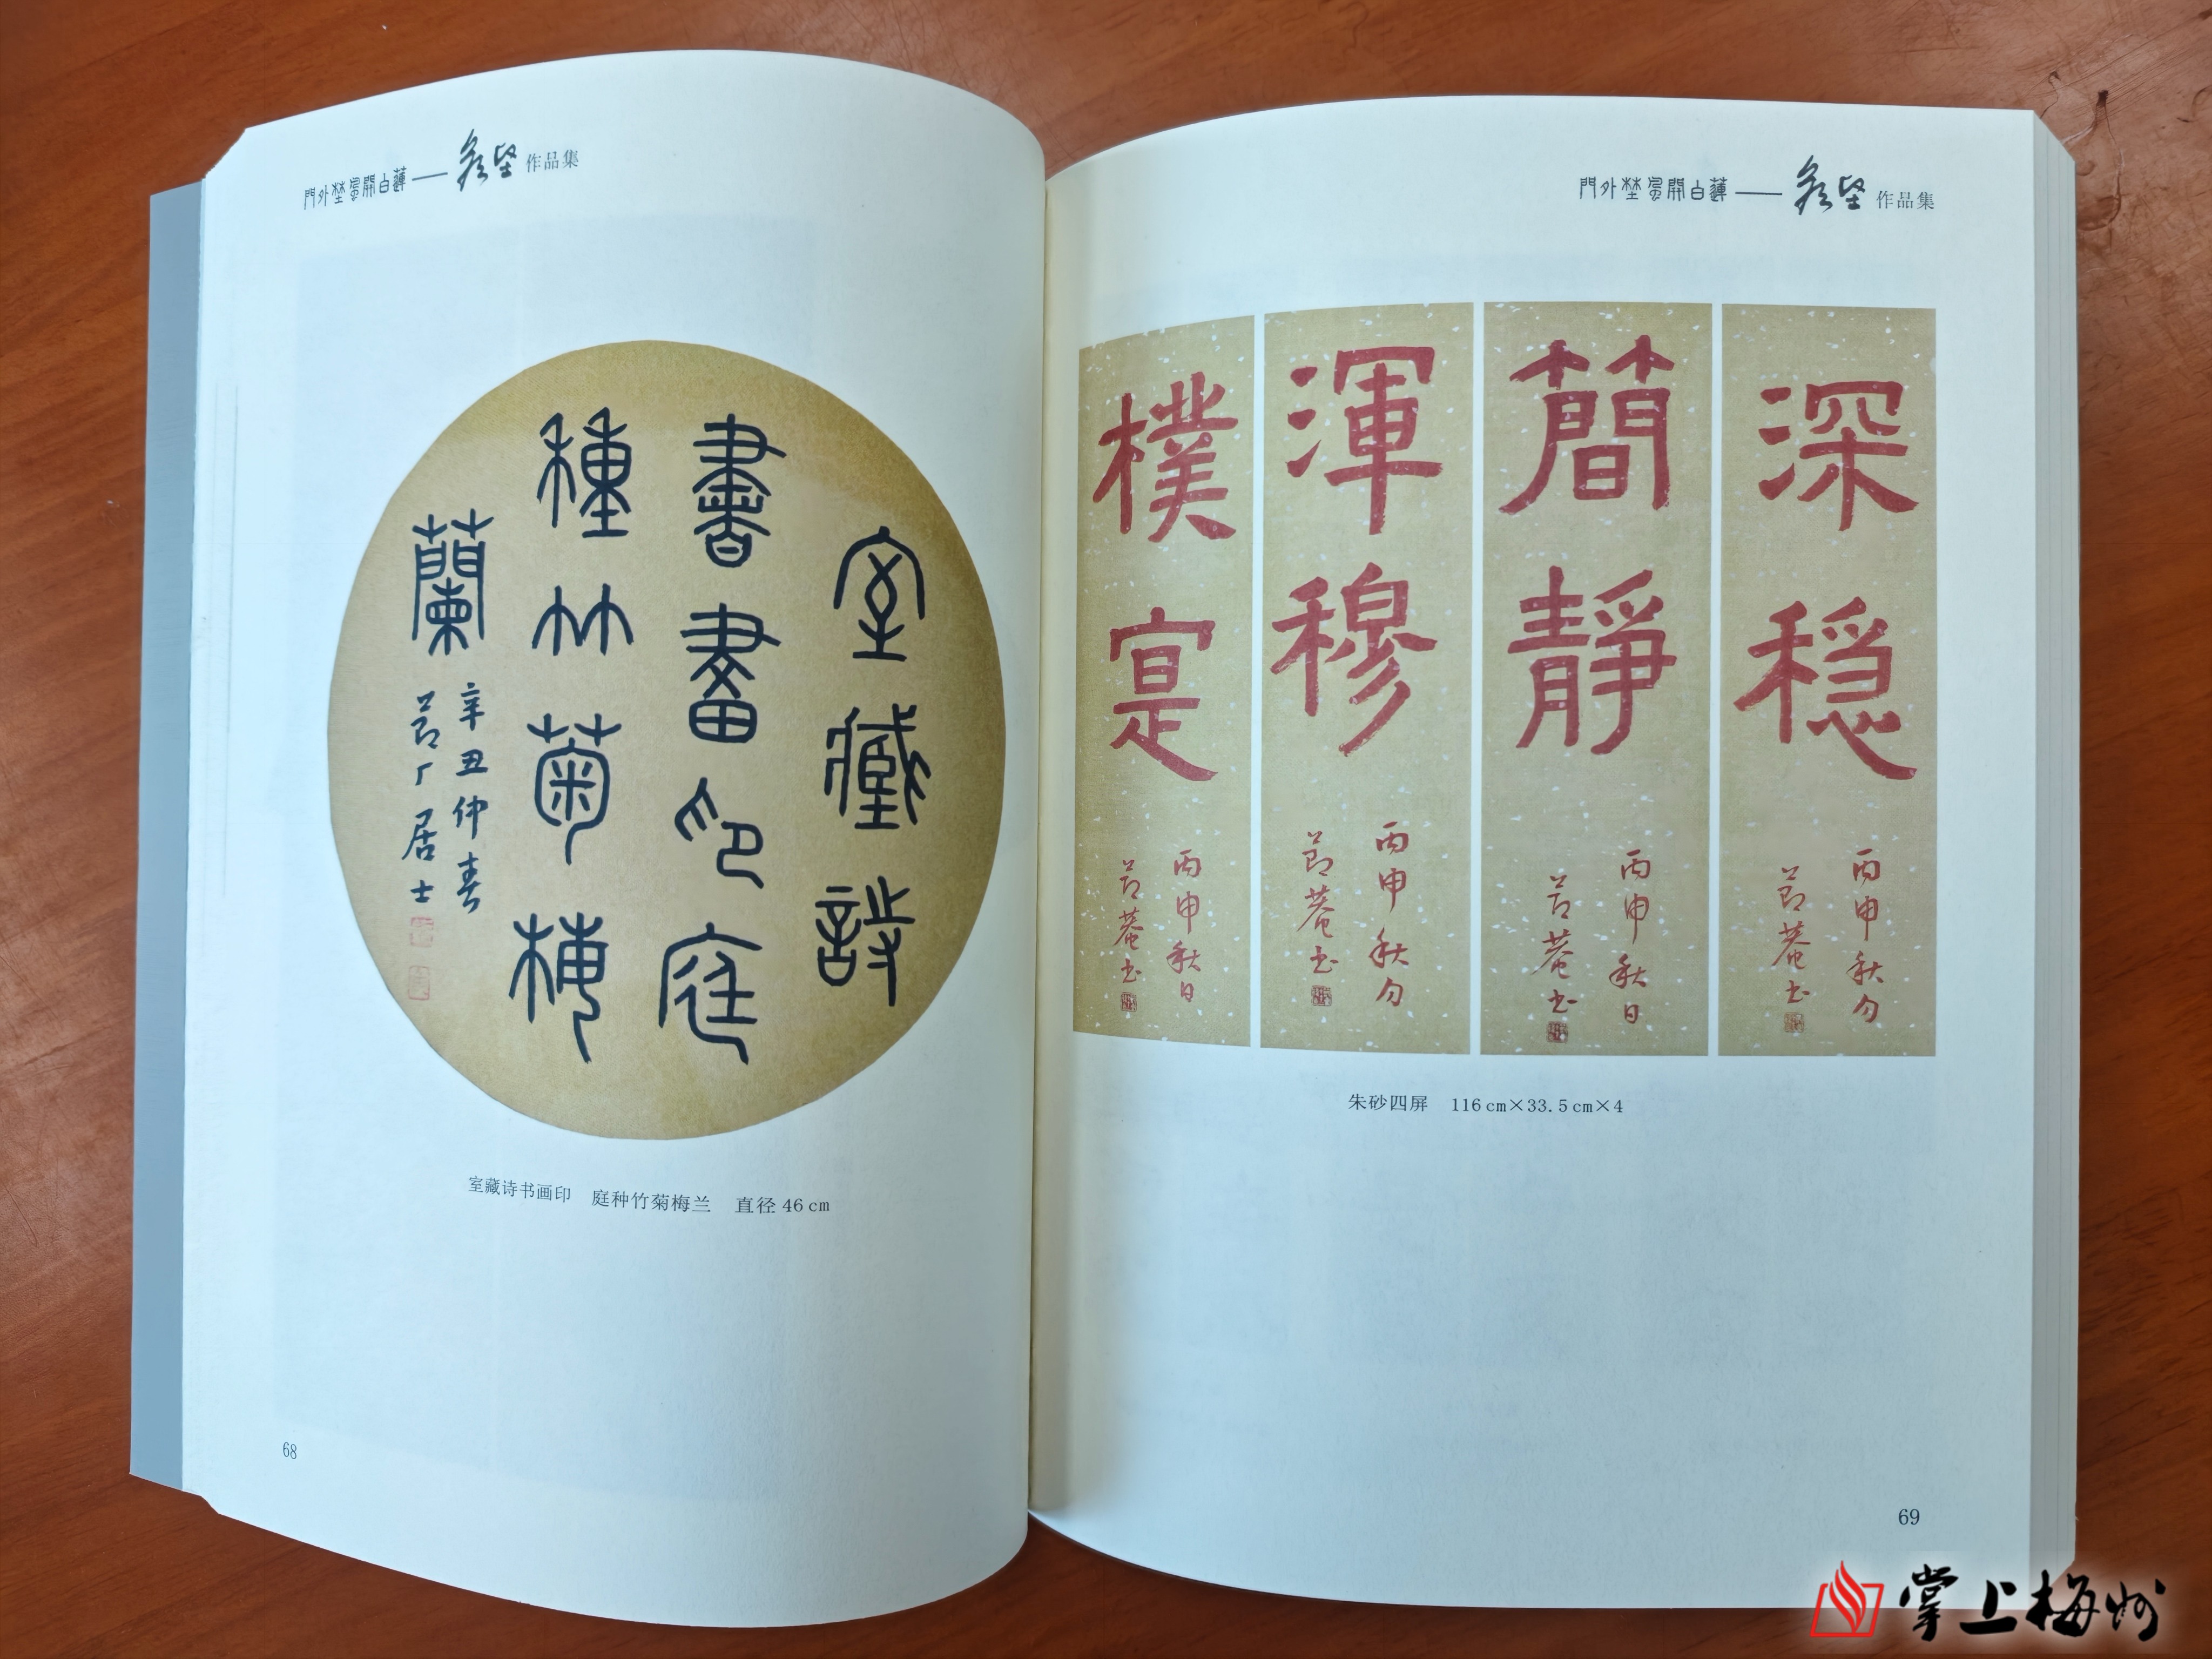 門外埜風開白蓮——
作品集
室藏詩
書畫印庭
種竹菊梅
蘭
辛丑仲春
節厂居士
室藏诗书画印　庭种竹菊梅兰　直径 46 cm
68
門外埜風開白蓮——
作品集
深穏
丙申秋分
節菴书
簡靜
丙申秋日
節菴书
渾穆
丙申秋分
節菴书
樸寔
丙申秋日
節菴书
朱砂四屏　116 cm×33.5 cm×4
69
掌上梅州